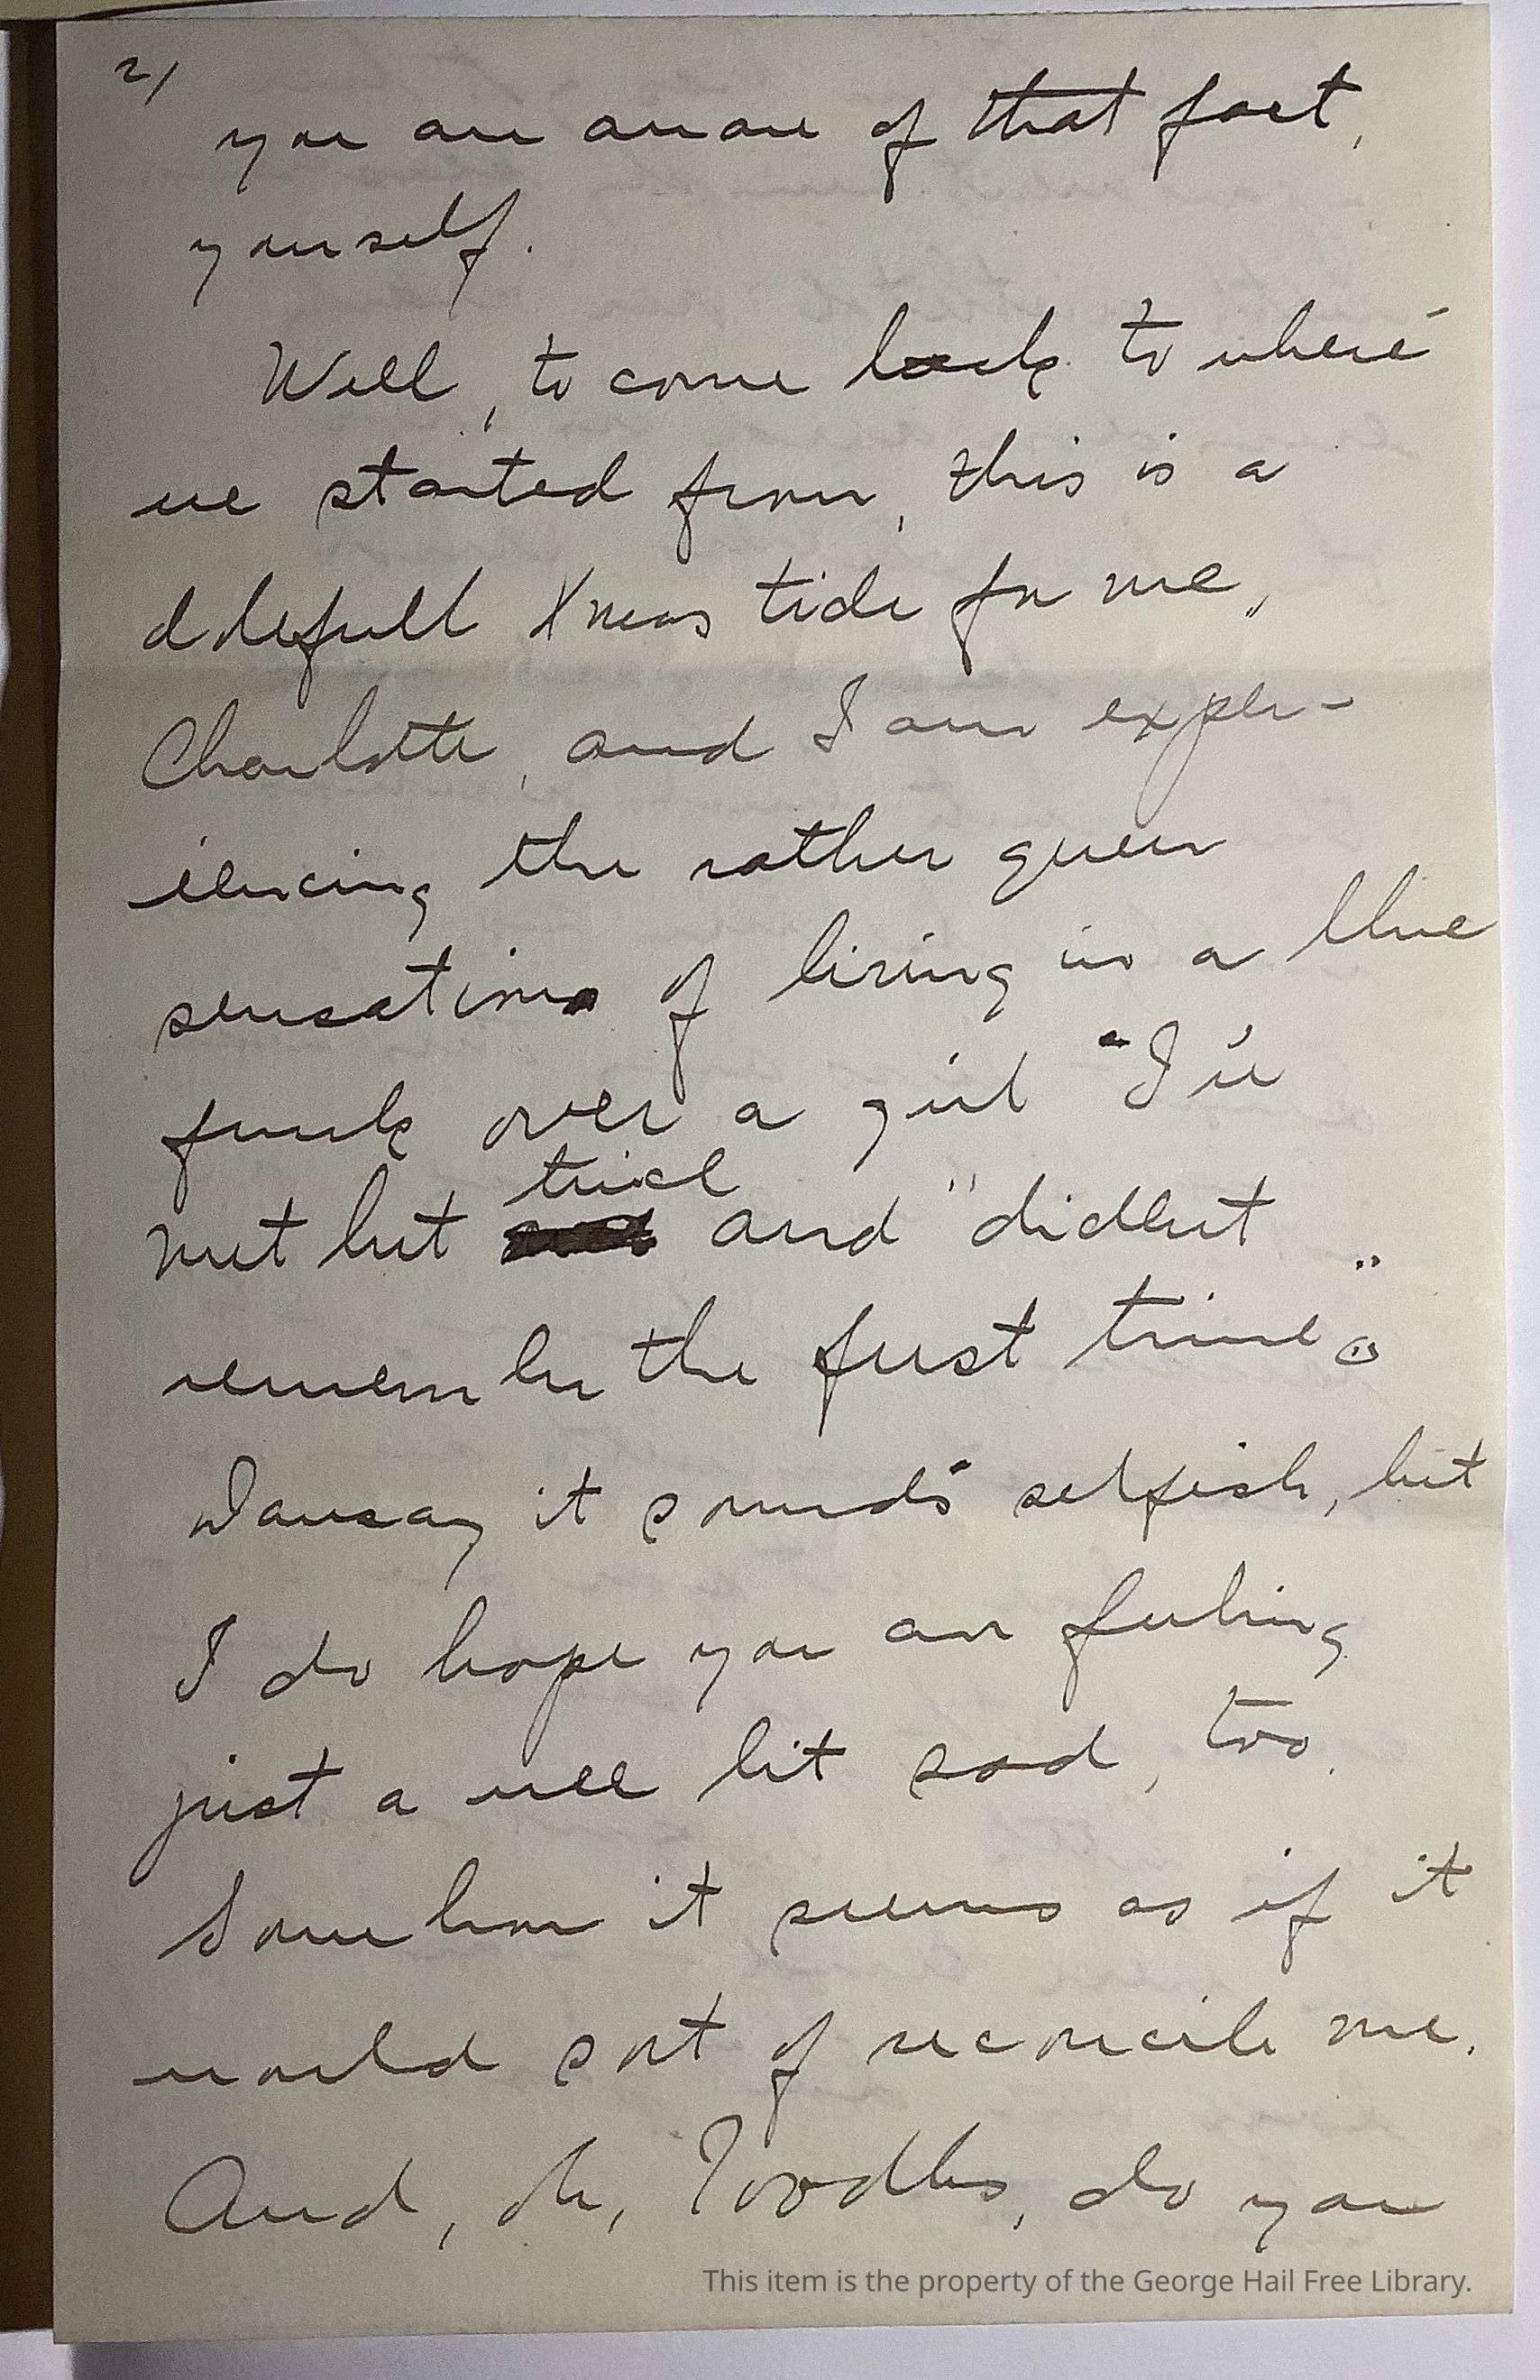 2/
you are aware of that fact,
yourself.
Well, to come back to where
we started from, this is a
dolefull Xmas tide for me,
Charlotte, and I am exper-
iencing the rather queer
sensation of living in a blue
funk over a girl "I've
met but twice" and "didn't
remember the first time".
Daresay it sounds selfish, but
I do hope you are feeling
just a wee bit sad, too.
Somehow it seems as if it
would sort of reconcile me.
And, oh, Toodles, do you
This item is the property of the George Hail Free Library.